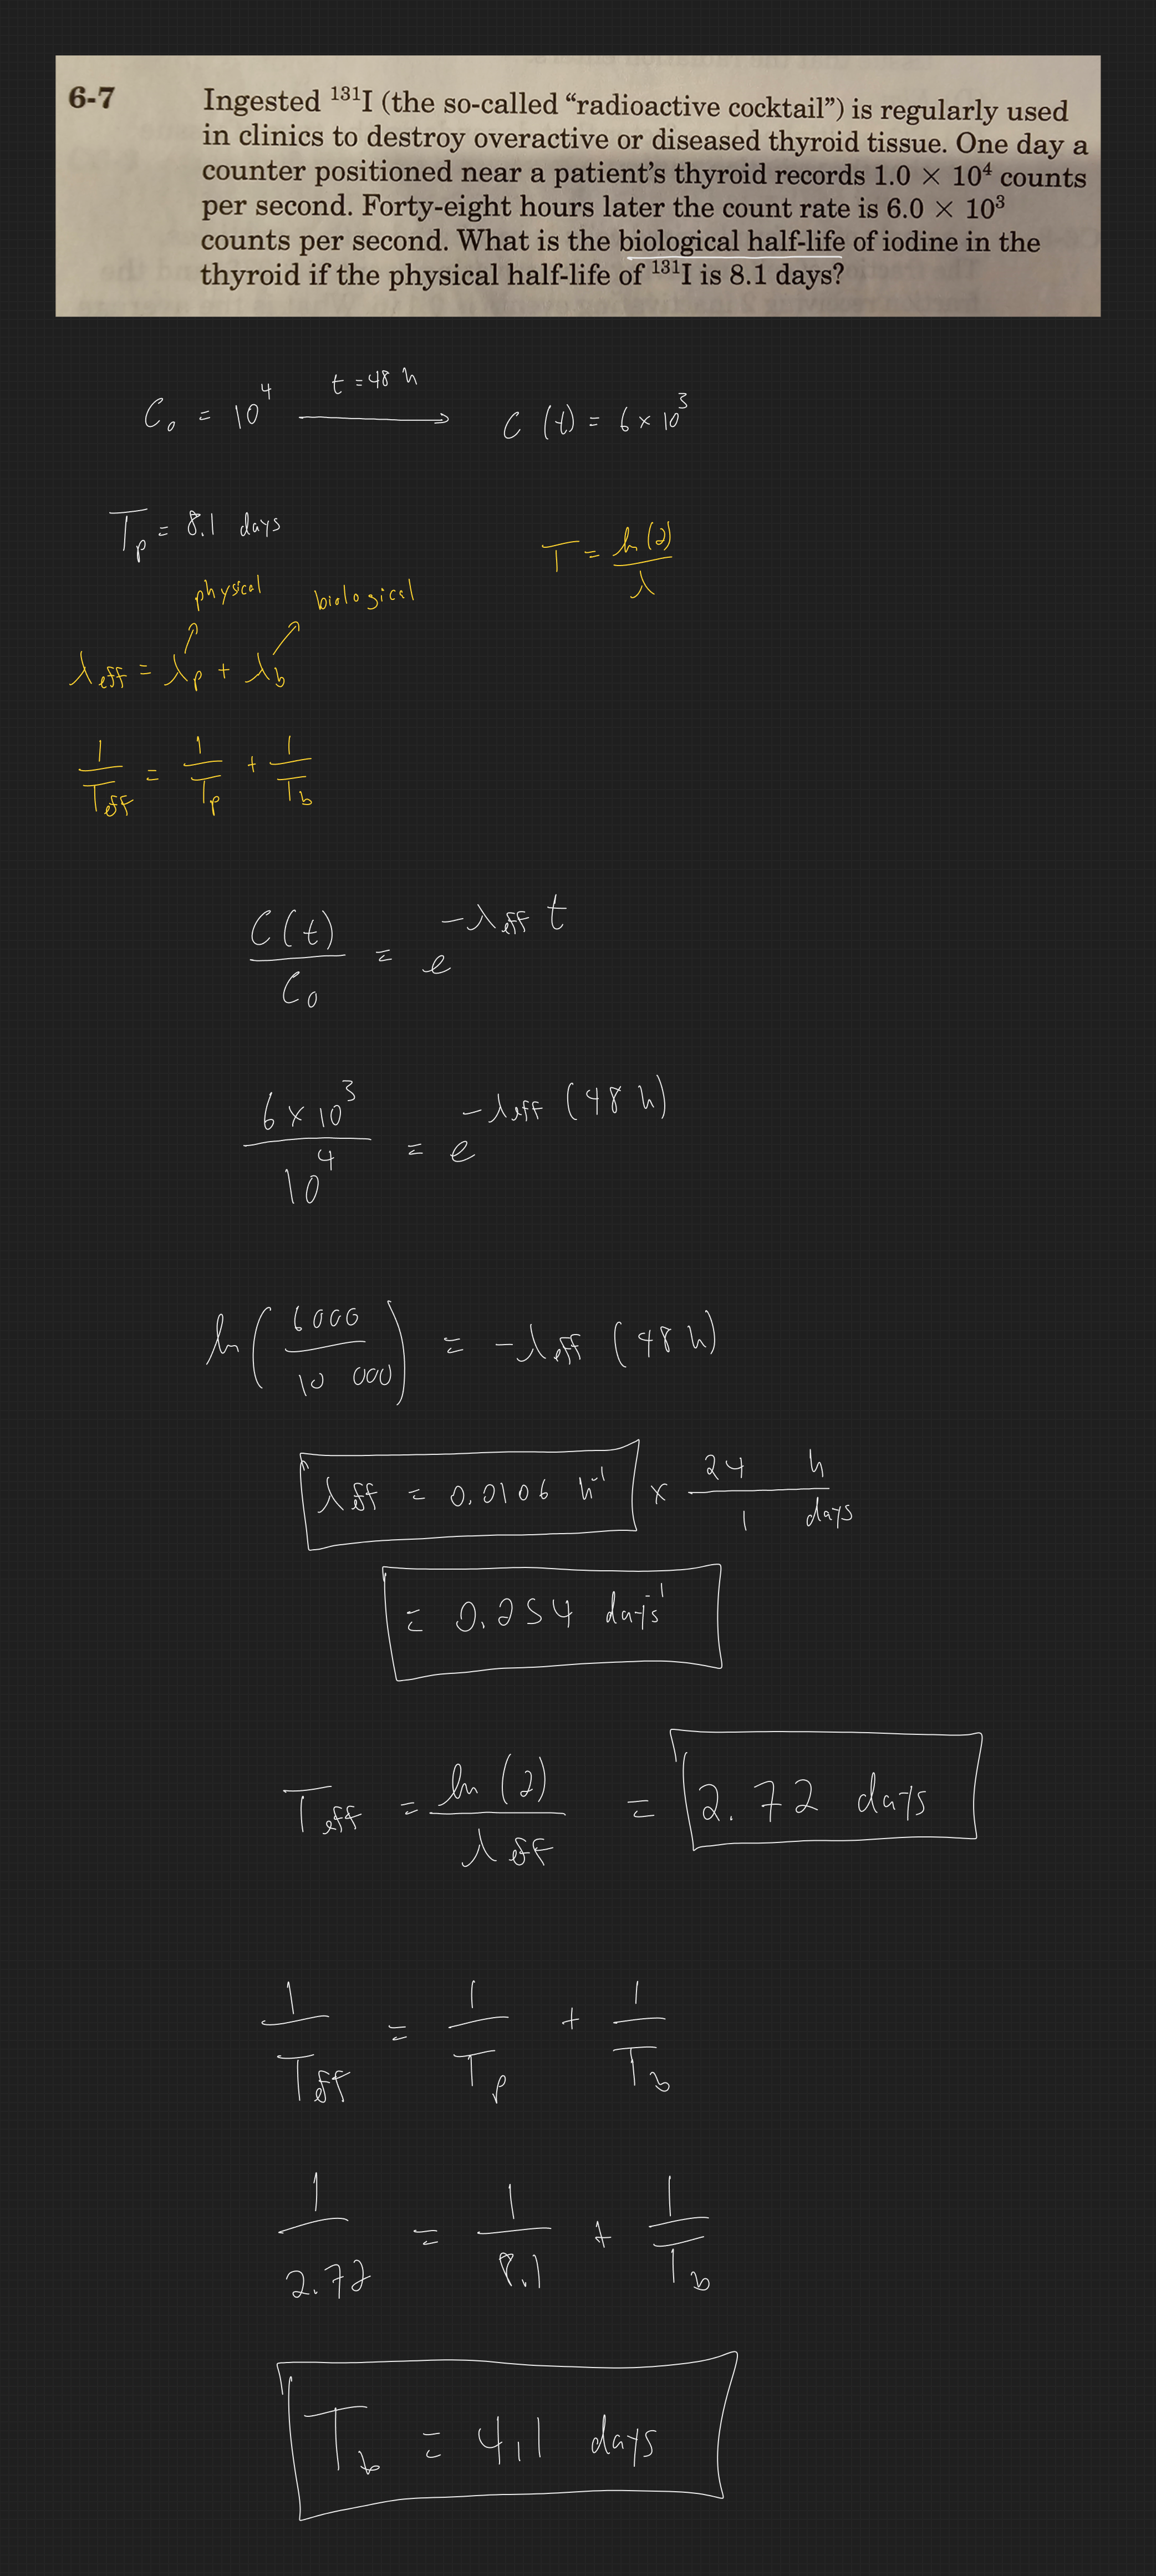 6-7 Ingested ¹³¹I (the so-called “radioactive cocktail”) is regularly used
in clinics to destroy overactive or diseased thyroid tissue. One day a
counter positioned near a patient’s thyroid records 1.0 × 10⁴ counts
per second. Forty-eight hours later the count rate is 6.0 × 10³
counts per second. What is the biological half-life of iodine in the
thyroid if the physical half-life of ¹³¹I is 8.1 days?
C₀ = 10⁴ t = 48 h → C(t) = 6 × 10³
T_p = 8.1 days
T = ln(2) / λ
physical biological
λ_eff = λ_p + λ_b
1/T_eff = 1/T_p + 1/T_b
C(t)/C₀ = e^(-λ_eff t)
6 × 10³ / 10⁴ = e^(-λ_eff (48 h))
ln(6000 / 10 000) = -λ_eff (48 h)
λ_eff = 0.0106 h⁻¹ × 24 h / 1 days
= 0.254 days⁻¹
T_eff = ln(2) / λ_eff = 2.72 days
1/T_eff = 1/T_p + 1/T_b
1/2.72 = 1/8.1 + 1/T_b
T_b = 4.1 days